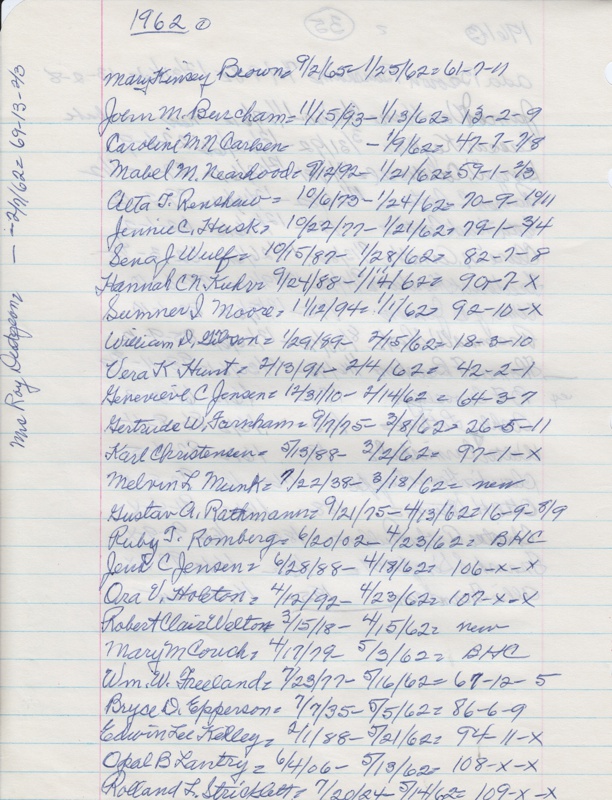 1962 ①
Mary Kinsey Brown = 9/2/65 - 1/25/62 = 61-7-11
John M. Burcham = 11/15/93 - 1/13/62 = 13-2-9
Caroline M N Carlsen - 1/9/62 = 47-7-7/8
Mabel M. Nearhood = 9/12/92 - 1/21/62 = 59-1-2/3
Alta T. Renshaw = 10/6/73 - 1/24/62 = 70-9-10/11
Jennie C. Husk = 10/22/77 - 1/21/62 = 79-1-3/4
Sena J Wulf = 10/15/87 - 1/28/62 = 82-7-8
Hannah C N Kuhr = 9/24/88 - 1/14/62 = 90-7-X
Sumner I. Moore = 11/12/94 = 1/1/62 = 92-10-X
William D. Gibson = 1/29/89 - 2/15/62 = 18-3-10
Vera K Hunt = 2/13/91 - 2/4/62 = 42-2-1
Genevieve C Jensen = 12/31/10 - 2/14/62 = 64-3-7
Gertrude W. Farnham = 9/7/75 - 3/8/62 = 26-5-11
Karl Christensen = 5/13/88 - 3/2/62 = 97-1-X
Melvin L Munk = 7/22/38 - 3/18/62 = new
Gustav A. Rathmann = 9/21/75 - 4/13/62 = 16-9-8/9
Ruby T. Romberg = 6/20/02 - 4/23/62 = BHC
Jens C Jensen = 6/28/88 - 4/18/62 = 106-X-X
Ora V. Holton = 4/12/92 - 4/23/62 = 107-X-X
Robert Clair Welton 3/15/18 - 4/15/62 = new
Mary M Couch = 4/17/79 - 5/3/62 = BHC
Wm. W. Freeland = 7/23/77 - 5/16/62 = 67-12-5
Bryse D. Epperson = 7/7/35 - 5/5/62 = 86-6-9
Edwin Lee Kelley = 2/1/88 - 5/21/62 = 94-11-X
Opal B Lantry = 6/4/06 - 5/13/62 = 108-X-X
Rolland L. Stricklett = 7/20/24 - 5/14/62 = 109-X-X
Mrs Roy Dodgson — - 2/7/62 = 69-13-2/3